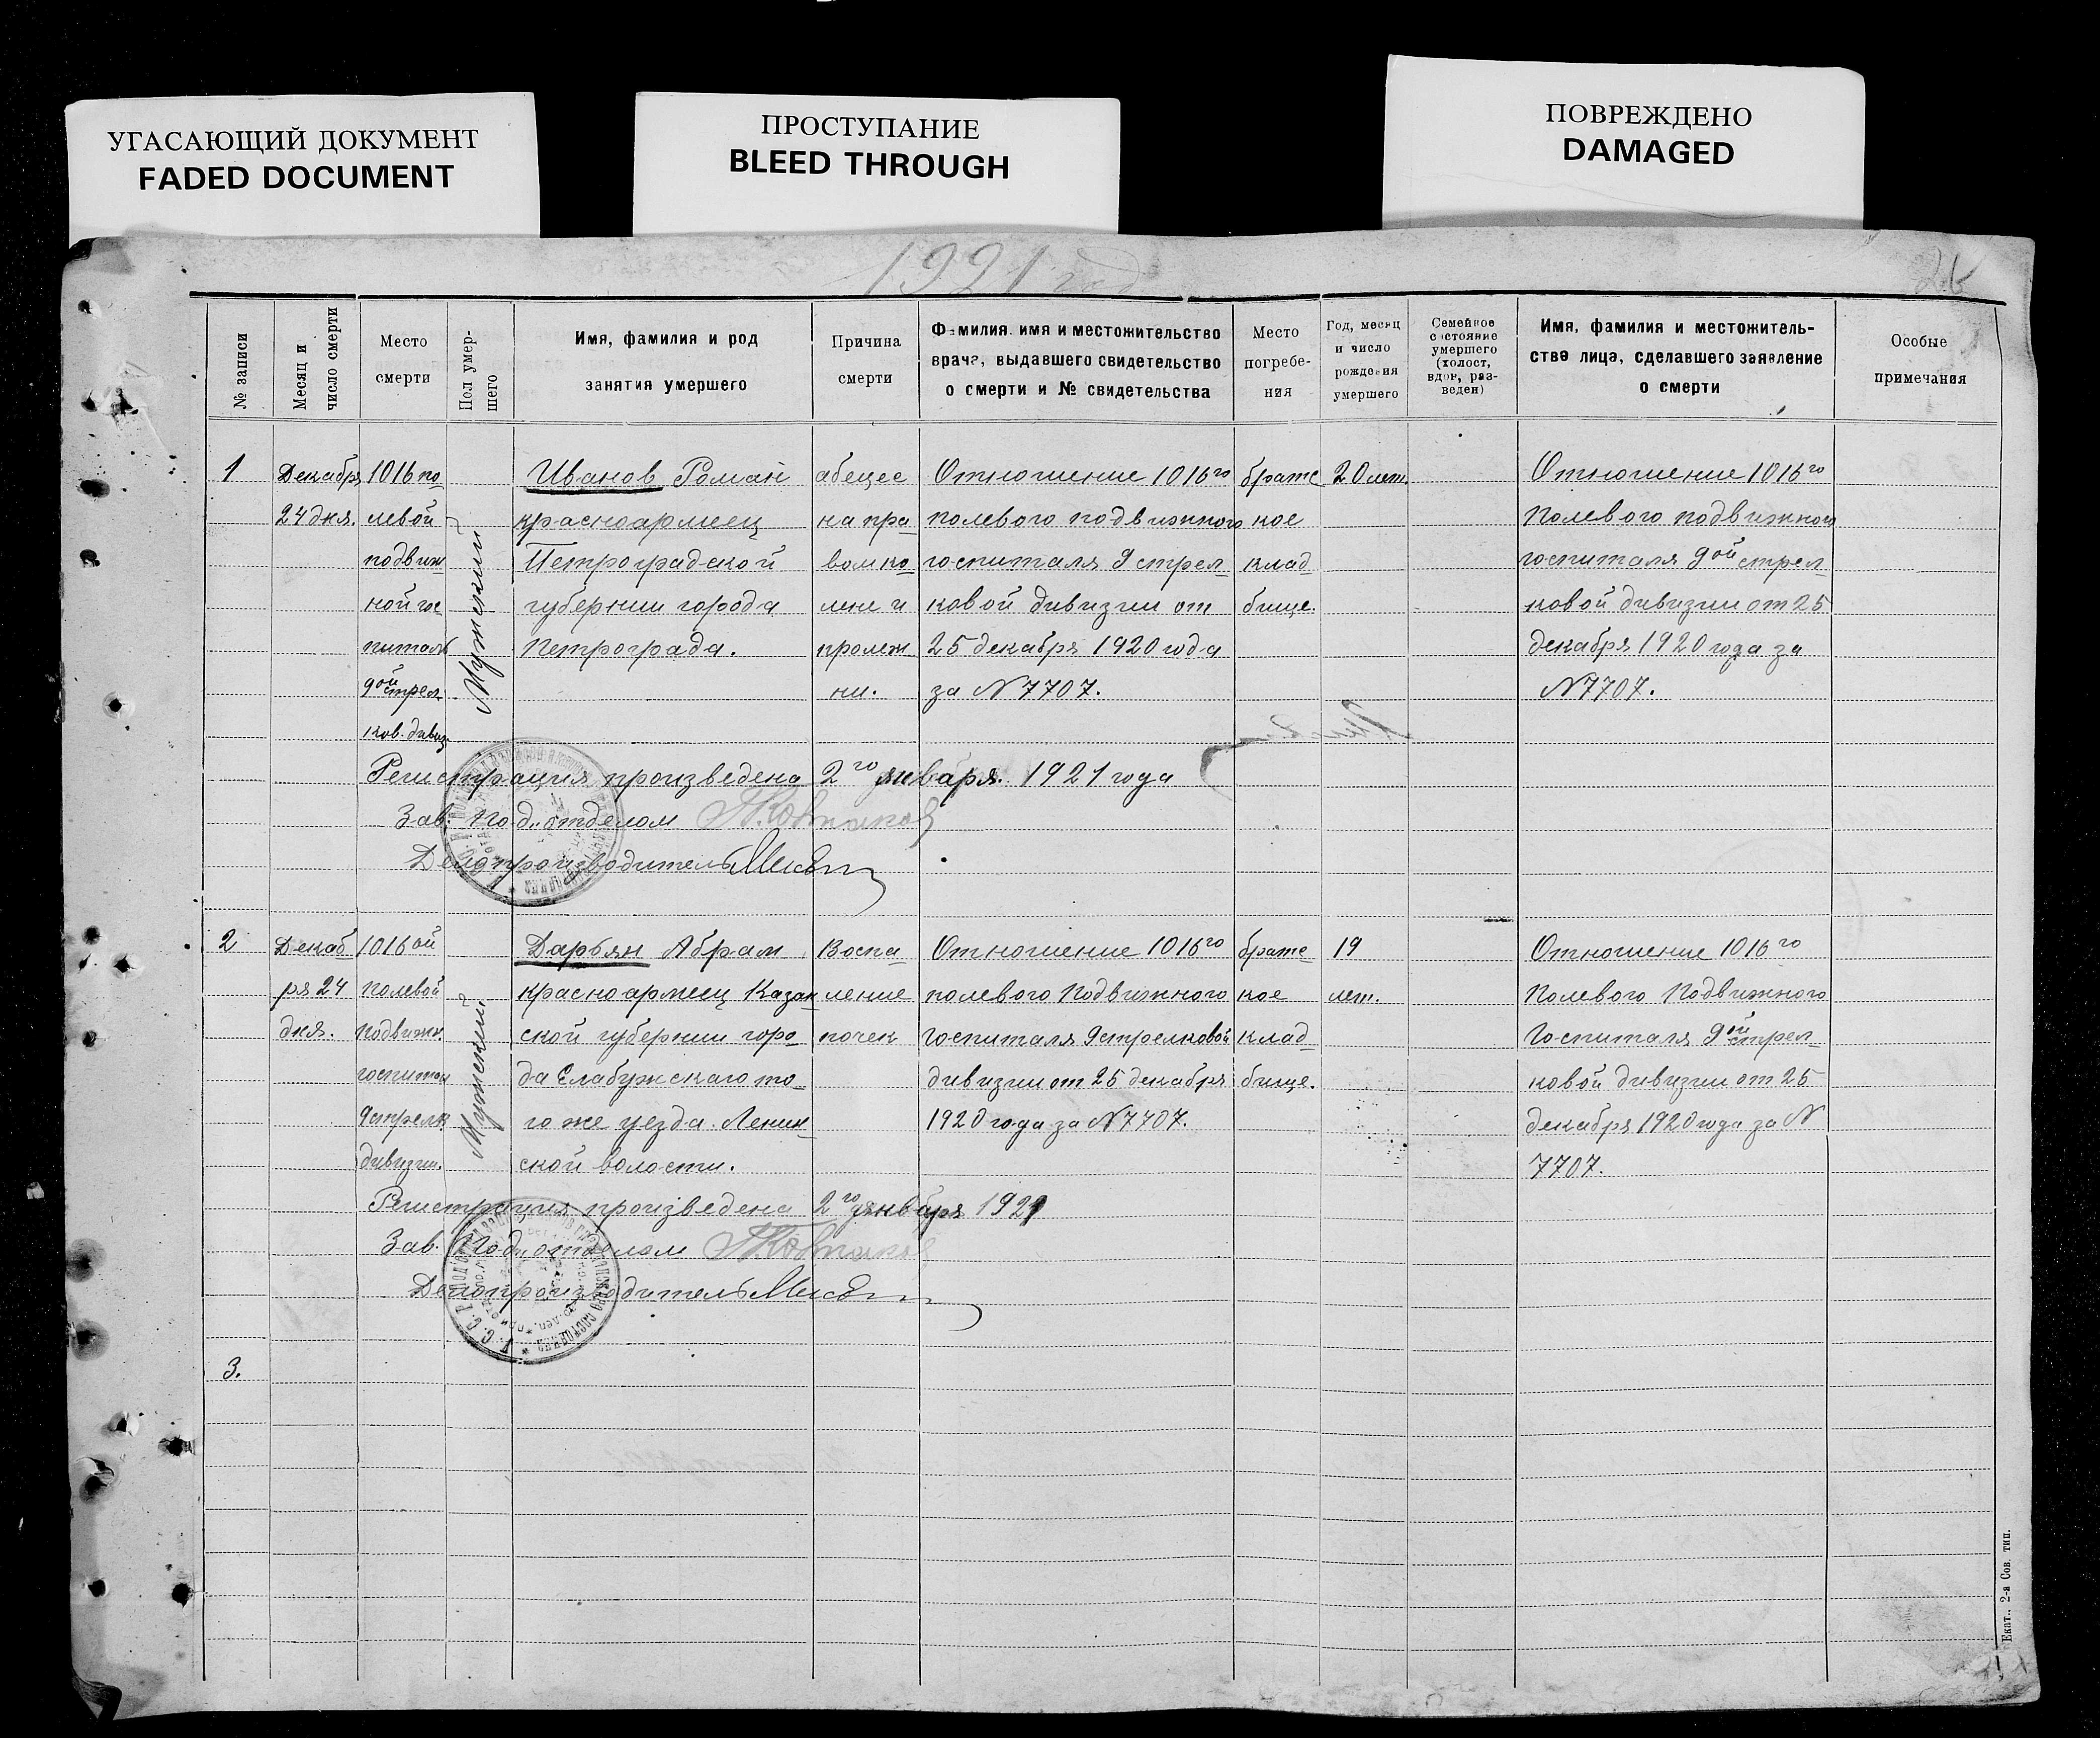 УГАСАЮЩИЙ ДОКУМЕНТ
FADED DOCUMENT
ПРОСТУПАНИЕ
BLEED THROUGH
ПОВРЕЖДЕНО
DAMAGED
1921 год
№ записи
Месяц и
число смерти
Место
смерти
Пол умер-
шего
Имя, фамилия и род
занятия умершего
Причина
смерти
Фамилия, имя и местожительство
врача, выдавшего свидетельство
о смерти и № свидетельства
Место
погребе-
ния
Год, месяц
и число
рождения
умершего
Семейное
состояние
умершего
(холост,
вдов, раз-
веден)
Имя, фамилия и местожитель-
ство лица, сделавшего заявление
о смерти
Особые
примечания
1
Декабря
24 дня.
1016 по
левой
подвиж
ной гос
питаль
9ой стрел
ков. дивиз
Мужской
Иванов Роман
красноармеец
Петроградской
губернии города
Петрограда.
абецес
на пра
вом ко
лене и
пролеж
ни.
Отношение 1016го
полевого подвижного
госпиталя 9 стрел
ковой дивизии от
25 декабря 1920 года
за N 7707.
братс
кое
клад
бище.
20 лет.
Отношение 1016го
полевого подвижного
госпиталя 9ой стрел
ковой дивизии от 25
декабря 1920 года за
N 7707.
Регистрация произведена 2го января. 1921 года
Зав. Под. отделом
Делопроизводитель
2
Декаб
ря 24
дня.
1016ой
полевой
подвижн.
госпитал
9 стрелк
дивизии.
Мужской
Дарбян Абрам
красноармеец Казан
ской губернии горо
да Елабужскаго то
го же уезда. Ленин
ской волости.
Воспа
ление
почек
Отношение 1016го
полевого Подвижного
Госпиталя 9 стрелковой
дивизии от 25 декабря
1920 года за N 7707.
братс
кое
клад
бище.
19
лет.
Отношение 1016го
Полевого Подвижного
Госпиталя 9ой стрел
ковой дивизии от 25
декабря 1920 года за N
7707.
Регистрация произведена 2го января 1921
Зав. Под. отделом
Делопроизводитель
3.
Екат., 2-я Сов. тип.